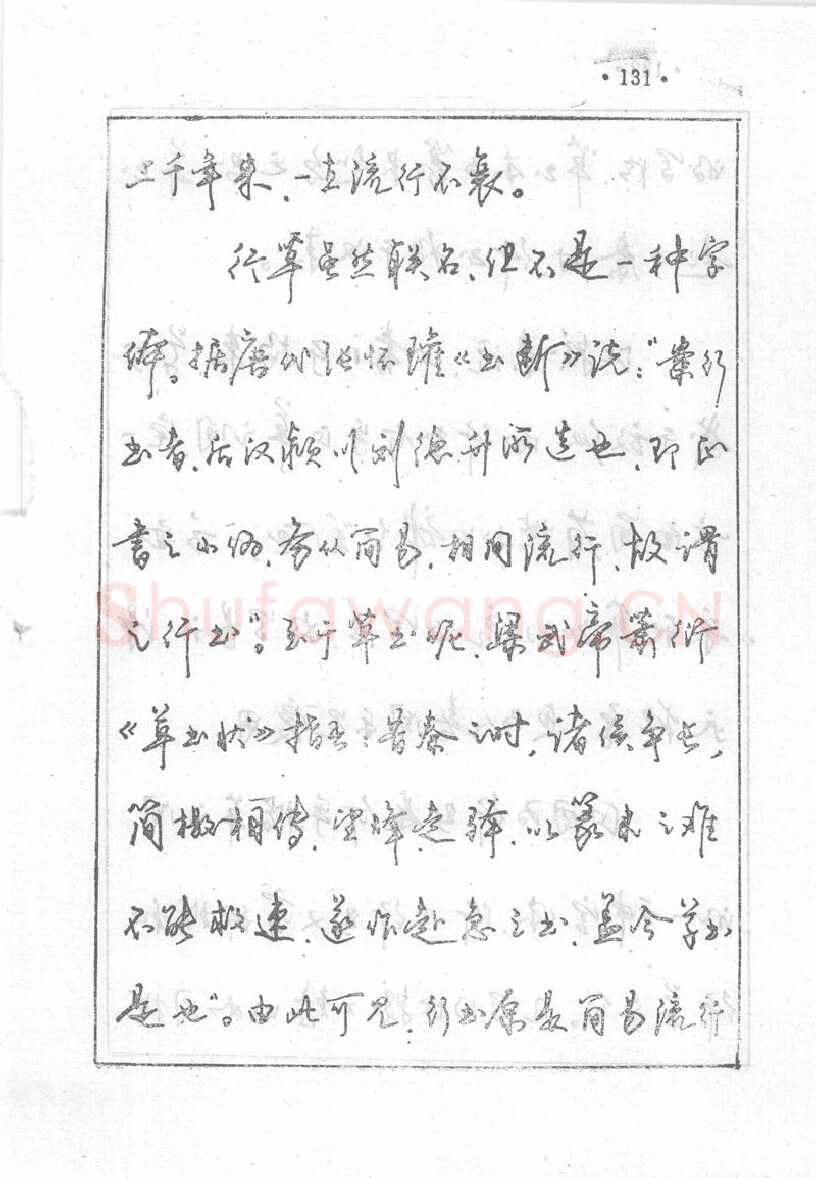 ·131·
上千年来，一直流行不衰。
行草虽然联名，但不是一种字
体。据唐代张怀瓘《书断》说：“案行
书者，后汉颍川刘德升所造也，即正
書之小伪，务从简易，相间流行，故谓
之行书”。至于草书呢，梁武帝萧衍
《草书状》指出：昔秦之时，诸侯争长，
简檄相传，望烽走驿，以篆隶之难
不能救速，遂作赴急之书，盖今草书
是也”。由此可见，行书原是简易流行
Shufawang.CN